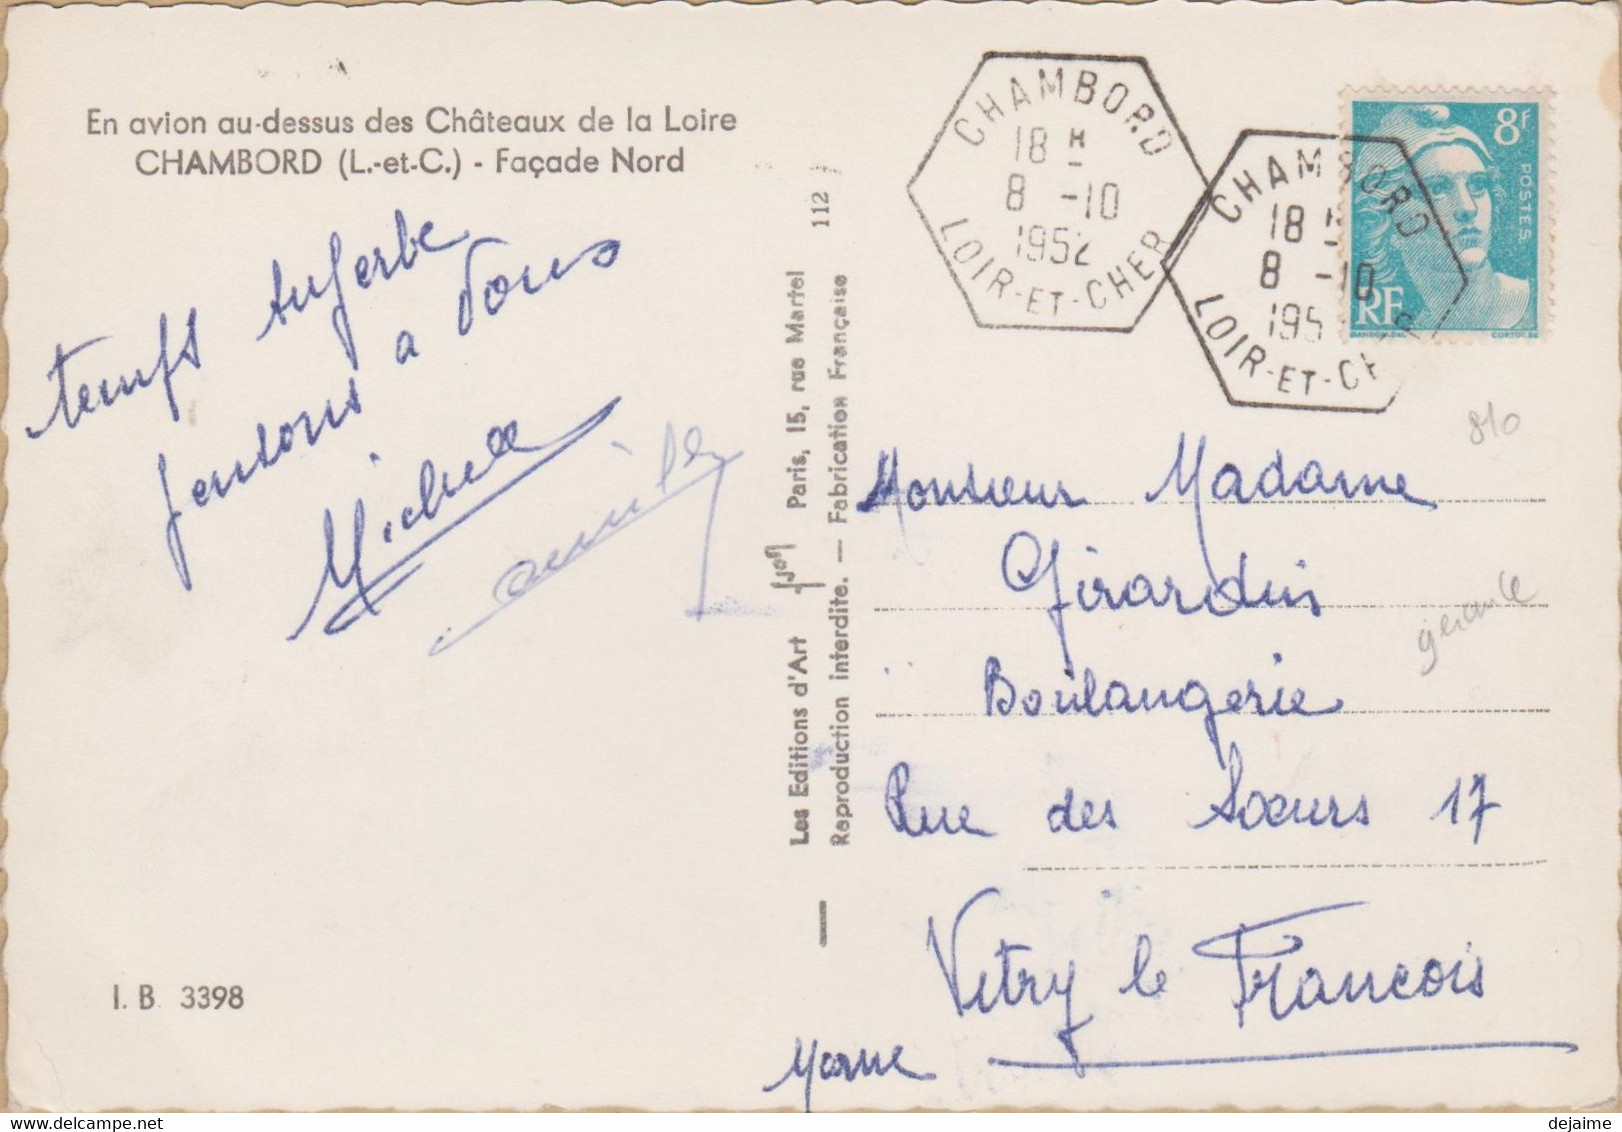 En avion au-dessus des Châteaux de la Loire
CHAMBORD (L.-et-C.) - Façade Nord
temps superbe
pensons a vous
I. B. 3398
Les Editions d'Art Yvon Paris, 15, rue Martel
Reproduction interdite. — Fabrication Française
112
CHAMBORD
18 H
8 -10
1952
LOIR-ET-CHER
CHAMBORD
18 H
8 -10
195
LOIR-ET-CHER
8F
POSTES
RF
GANDON.DEL
CORTOT.SC
810
Monsieur Madame
Girardin
gérante
Boulangerie
Rue des Sœurs 17
Vitry le François
Marne
dejaime